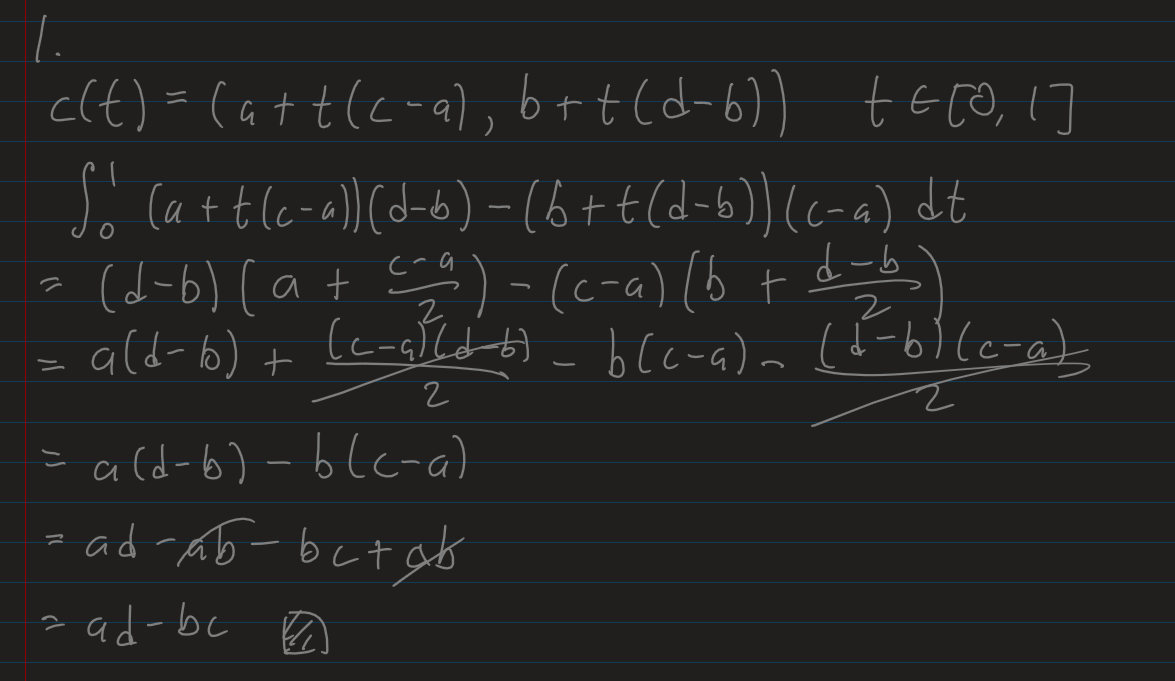 1.
c(t) = (a + t(c-a), b + t(d-b)) t ∈ [0, 1]
∫₀¹ (a + t(c-a))(d-b) - (b + t(d-b))(c-a) dt
= (d-b)(a + \frac{c-a}{2}) - (c-a)(b + \frac{d-b}{2})
= a(d-b) + \frac{(c-a)(d-b)}{2} - b(c-a) - \frac{(d-b)(c-a)}{2}
= a(d-b) - b(c-a)
= ad - ab - bc + ab
= ad - bc